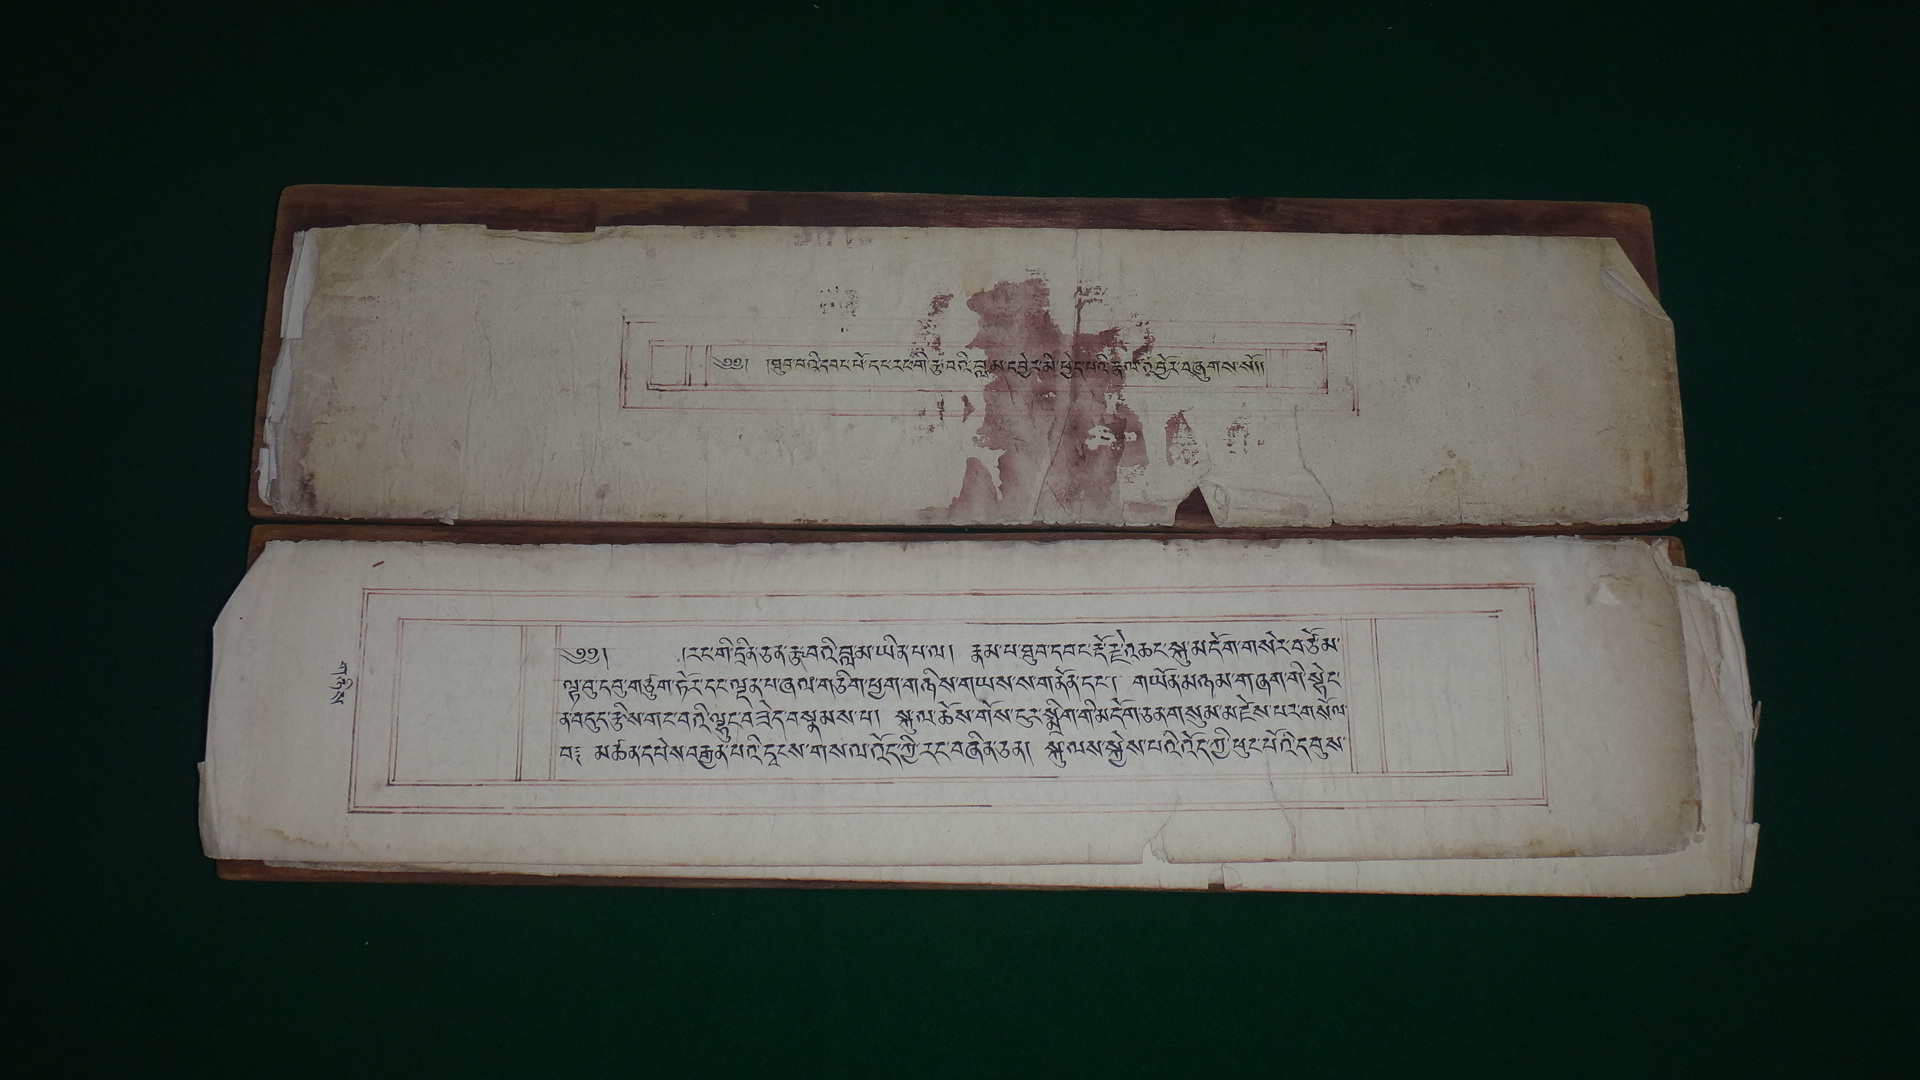 ༄༅། །ཐུབ་པའི་དབང་པོ་དང་རང་གི་རྩ་བའི་བླ་མ་དབྱེར་མི་ཕྱེད་པའི་རྣལ་འབྱོར་བཞུགས་སོ།།
༄༅། །རང་གི་དྲིན་ཅན་རྩ་བའི་བླ་མ་ཡིན་པ་ལ། རྣམ་པ་ཐུབ་དབང་རྡོ་རྗེ་འཆང་སྐུ་མདོག་གསེར་བཙོ་མ་
ལྟ་བུ་དབུ་གཙུག་ཏོར་དང་ལྡན་པ་ཞལ་གཅིག་ཕྱག་གཉིས་གཡས་ས་གནོན་དང་། གཡོན་མཉམ་གཞག་གི་སྟེང་
ན་བདུད་རྩིས་གང་བའི་ལྷུང་བཟེད་བསྣམས་པ། སྐུ་ལ་ཆོས་གོས་ངུར་སྨྲིག་གི་མདོག་ཅན་གསུམ་མཛེས་པར་གསོལ་
བ༑ མཚན་དཔེས་བརྒྱན་པའི་དྭངས་གསལ་འོད་ཀྱི་རང་བཞིན་ཅན། སྐུ་ལས་སྐྱེས་པའི་འོད་ཀྱི་ཕུང་པོའི་དབུས་